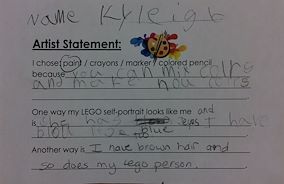 Name Kyleigh
Artist Statement:
I chose: paint / crayons / marker / colored pencil
because you can mix colrs
and make nou colrs
One way my LEGO self-portrait looks like me and
is she has eyes I have
blou blue
Another way is I have brown hair and
so does my lego person.